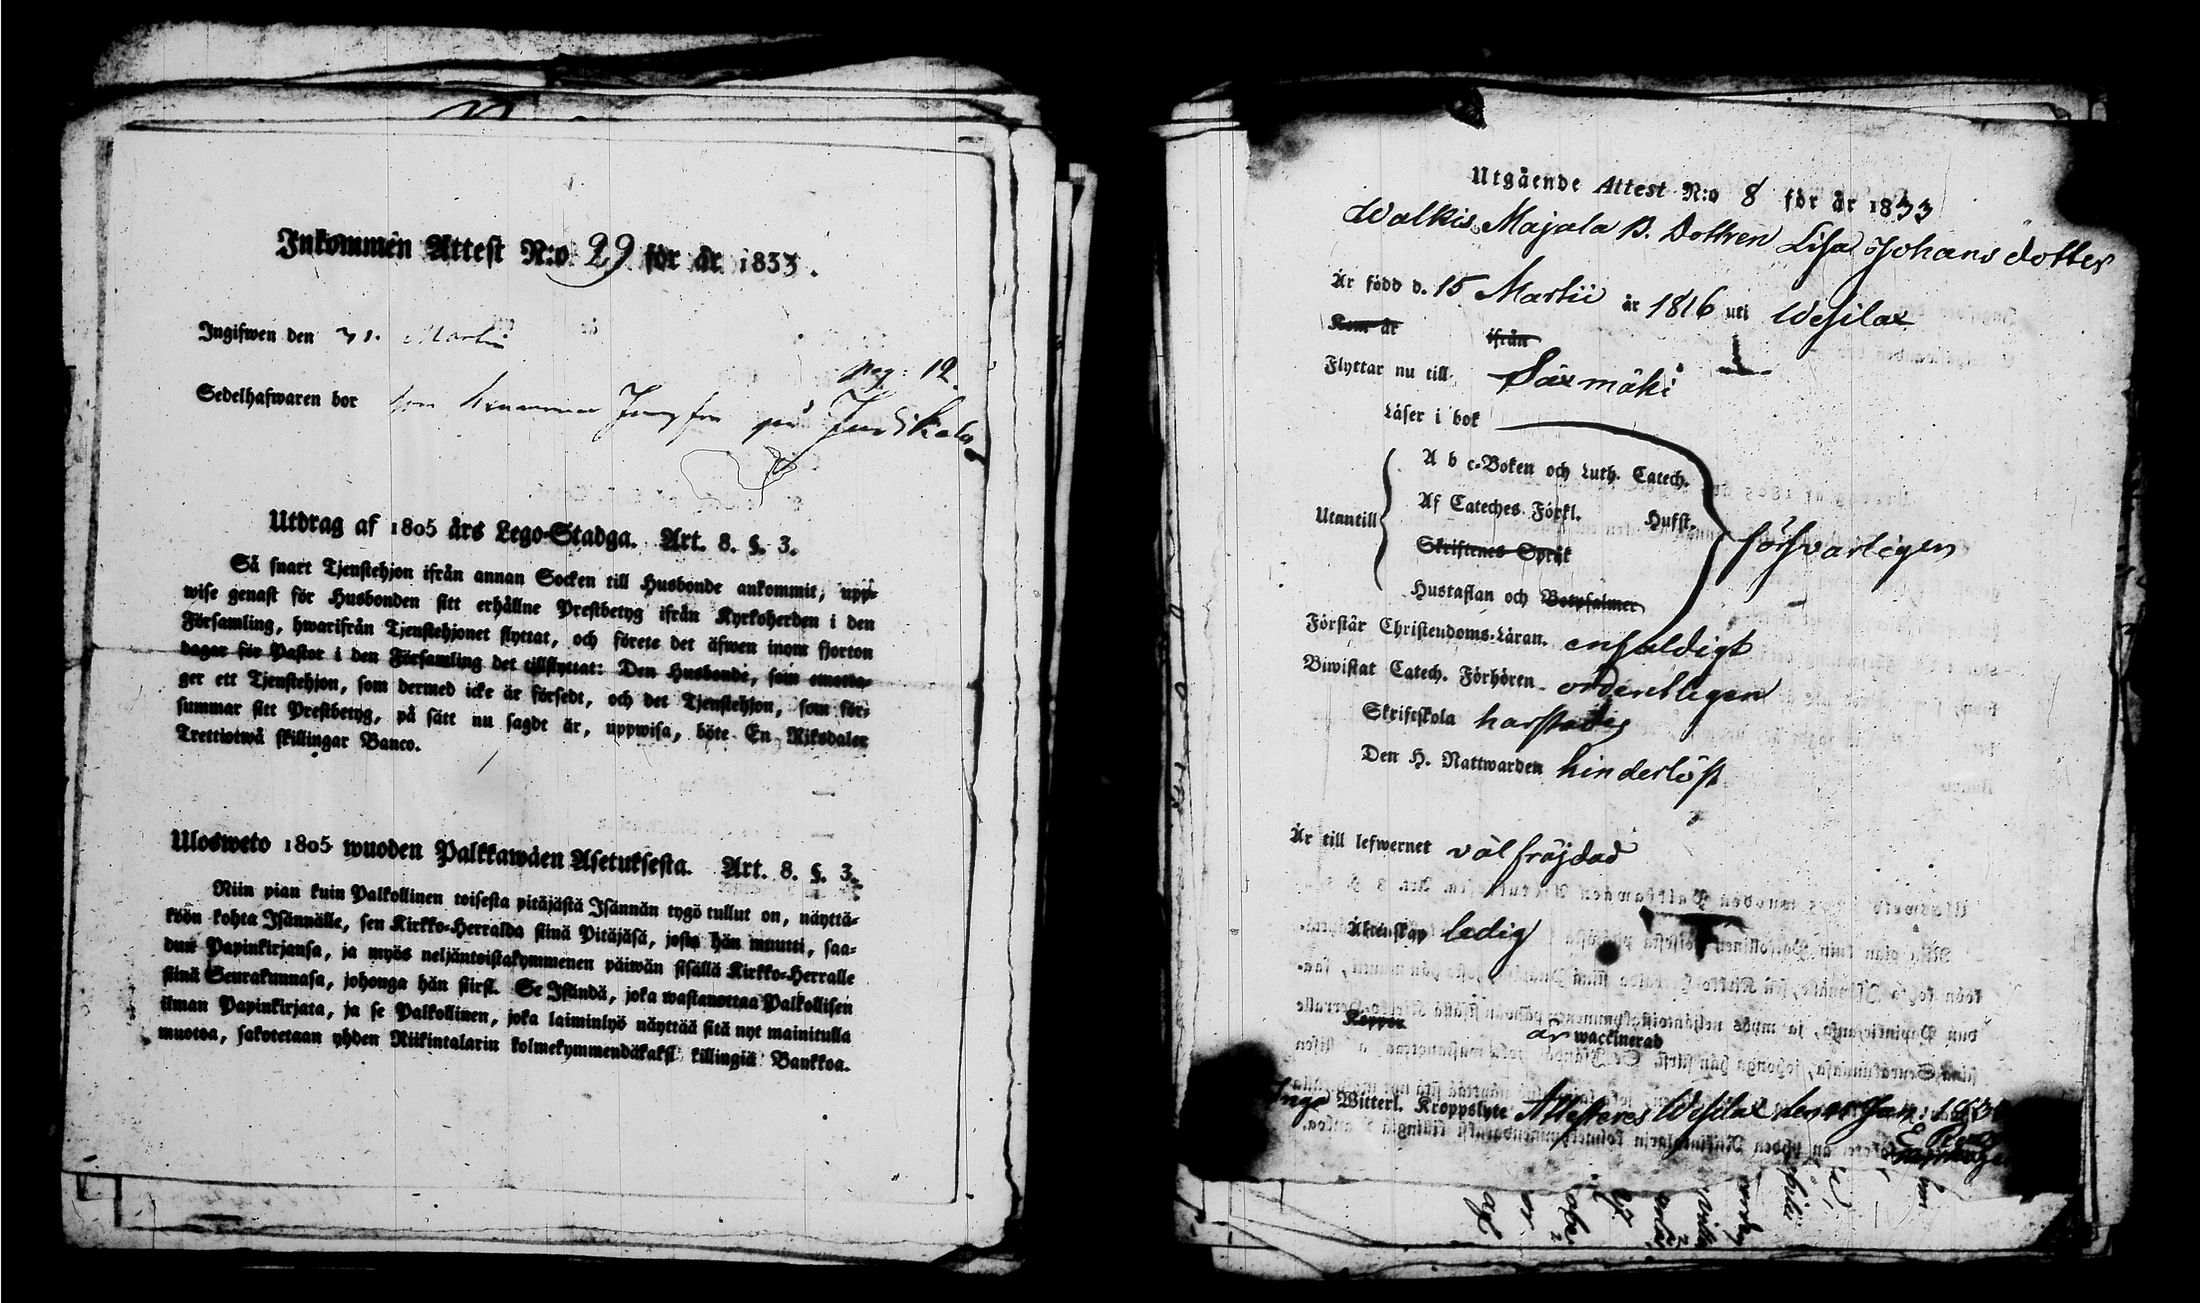 Inkommen Attest N:o 29 för år 1833.
Ingifwen den 31. Martii
pag: 12.
Sedelhafwaren bor som Jungfru på Jutikala
Utdrag af 1805 års Lego-Stadga. Art. 8. §. 3.
Så snart Tjenstehjon ifrån annan Socken till Husbonde ankommit, upp-
wise genast för Husbonden sitt erhållne Prestbetyg ifrån Kyrkoherden i den
Församling, hwarifrån Tjenstehjonet flyttat, och förete det äfwen inom fjorton
dagar för Pastor i den Församling det tillflyttat: Den Husbonde, som emotta-
ger ett Tjenstehjon, som dermed icke är försedt, och det Tjenstehjon, som för-
summar sitt Prestbetyg, på sätt nu sagdt är, uppwisa, böte En Riksdaler
Trettiotwå skillingar Banco.
Ulosweto 1805 wuoden Palkkawäen Asetuksesta. Art. 8. §. 3.
Niin pian kuin Palkollinen toisesta pitäjästä Isännän tygö tullut on, näyttä-
köön kohta Isännälle, sen Kirkko-Herralda siinä Pitäjäsä, josta hän muutti, saa-
dun Papinkirjansa, ja myös neljäntoistakymmenen päiwän sisällä Kirkko-Herralle
siinä Seurakunnasa, johonga hän siirsi. Se Isändä, joka wastanottaa Palkollisen
ilman Papinkirjata, ja se Palkollinen, joka laiminlyö näyttää sitä nyt mainitulla
muotoa, sakotetaan yhden Riikintalarin kolmekymmendäkaksi killingiä Bankkoa.
Utgående Attest N:o 8 för år 1833
Walkis Majala B. Dottren Lisa Johans dotter
Är född d. 15 Martii år 1816 uti Wesilax
Kom år ifrån
Flyttar nu till Säxmäki
Läser i bok
A b c-Boken och Luth. Catech.
Utantill Af Cateches Förkl. Hufst. försvarligen
Skriftenes Språk
Hustaflan och Botpsalmer
Förstår Christendoms-Läran. enfaldigt
Biwistat Catech. Förhören ordentligen
Skriftskola
Den H. Nattwarden hinderlöst
Är till lefwernet välfräjdad
Äktenskap ledig
Koppor är wackinerad
Inga Witterl. Kroppslyte Attesteras Wesilax den Jan: 183